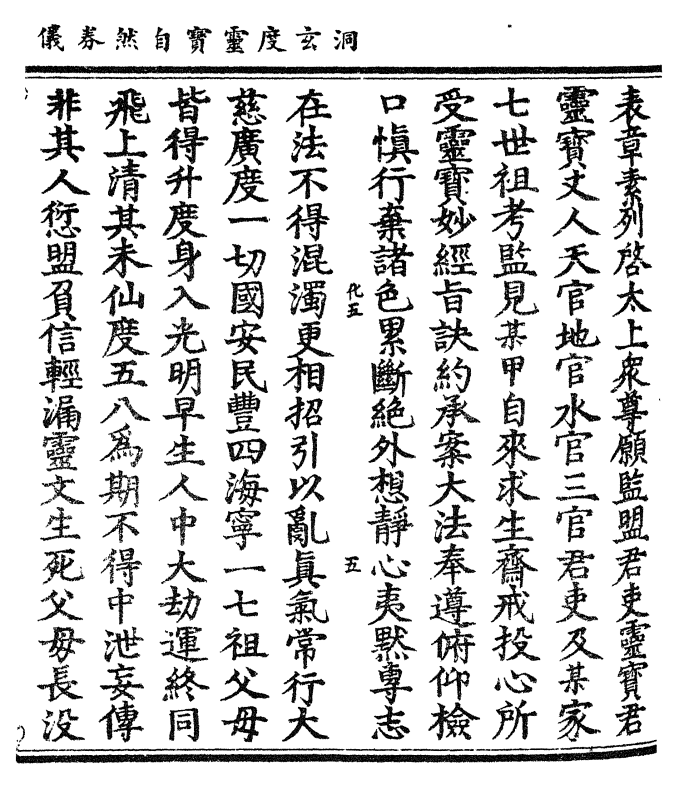 洞玄度靈寶自然券儀
表章素列啓太上衆尊願監盟君吏靈寶君
靈寶丈人天官地官水官三官君吏及某家
七世祖考監見某甲自來求生齋戒投心所
受靈寶妙經旨訣約承案大法奉遵俯仰檢
口愼行棄諸色累斷絕外想靜心夷默專志
化五
五
在法不得混濁更相招引以亂眞氣常行大
慈廣度一切國安民豐四海寧一七祖父母
皆得升度身入光明早生人中大劫運終同
飛上清其未仙度五八爲期不得中泄妄傳
非其人愆盟負信輕漏靈文生死父母長没